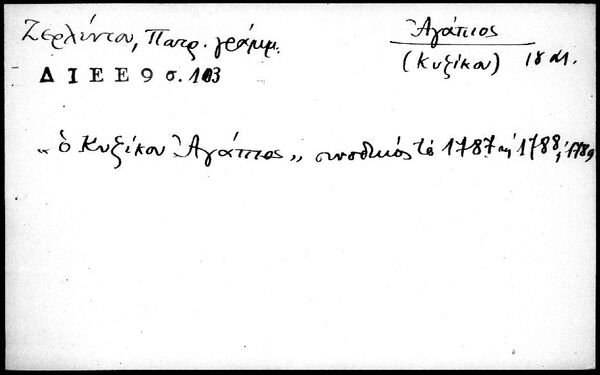 Ζερλέντου, Πατρ. γράμμ.
Ἀγάπιος
(Κυζίκου) 18 αι.
Δ Ι Ε Ε 9 σ. 103
„ὁ Κυζίκου Ἀγάπιος„ συνοδικός τὸ 1787 καὶ 1788, 1789